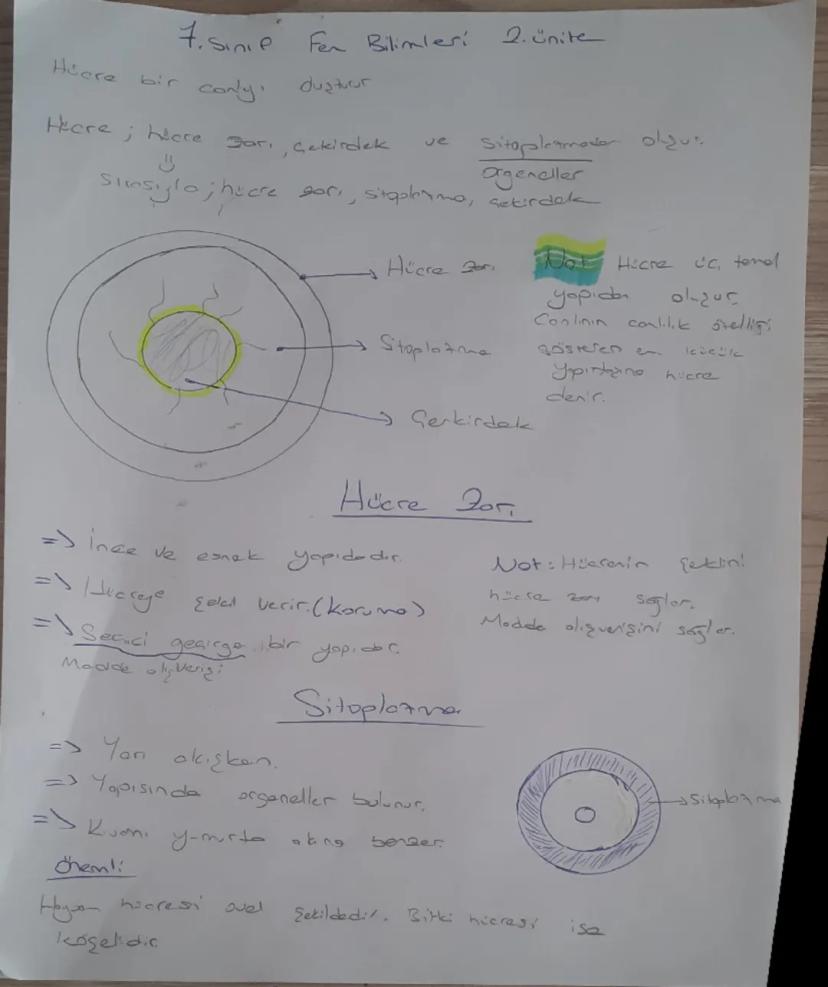 7. Sınıf Fen Bilimleri 2. ünite
Hücre bir canlıyı oluşturur
Hücre; hücre zarı, çekirdek ve sitoplazmadan oluşur.
organeller
Sırasıyla; hücre zarı, sitoplazma, çekirdek
Hücre zarı
Sitoplazma
Çerkirdek
Not: Hücre üç temel
yapıdan oluşur.
Canlının canlılık özelliği
gösteren en küçük
yapıtaşına hücre
denir.
Hücre Zarı
=> İnce ve esnek yapıdadır.
=> Hücreye şekil verir. (Koruma)
=> Seçici geçirgen bir yapıdır.
Madde alışverişi
Not: Hücrenin şeklini
hücre zarı sağlar.
Madde alışverişini sağlar.
Sitoplazma
=> Yarı akışkan.
=> Yapısında organeller bulunur.
=> Kıvamı yumurta akına benzer.
Sitoplazma
Önemli
Hayvan hücresi oval şekildedir. Bitki hücresi ise
köşelidir